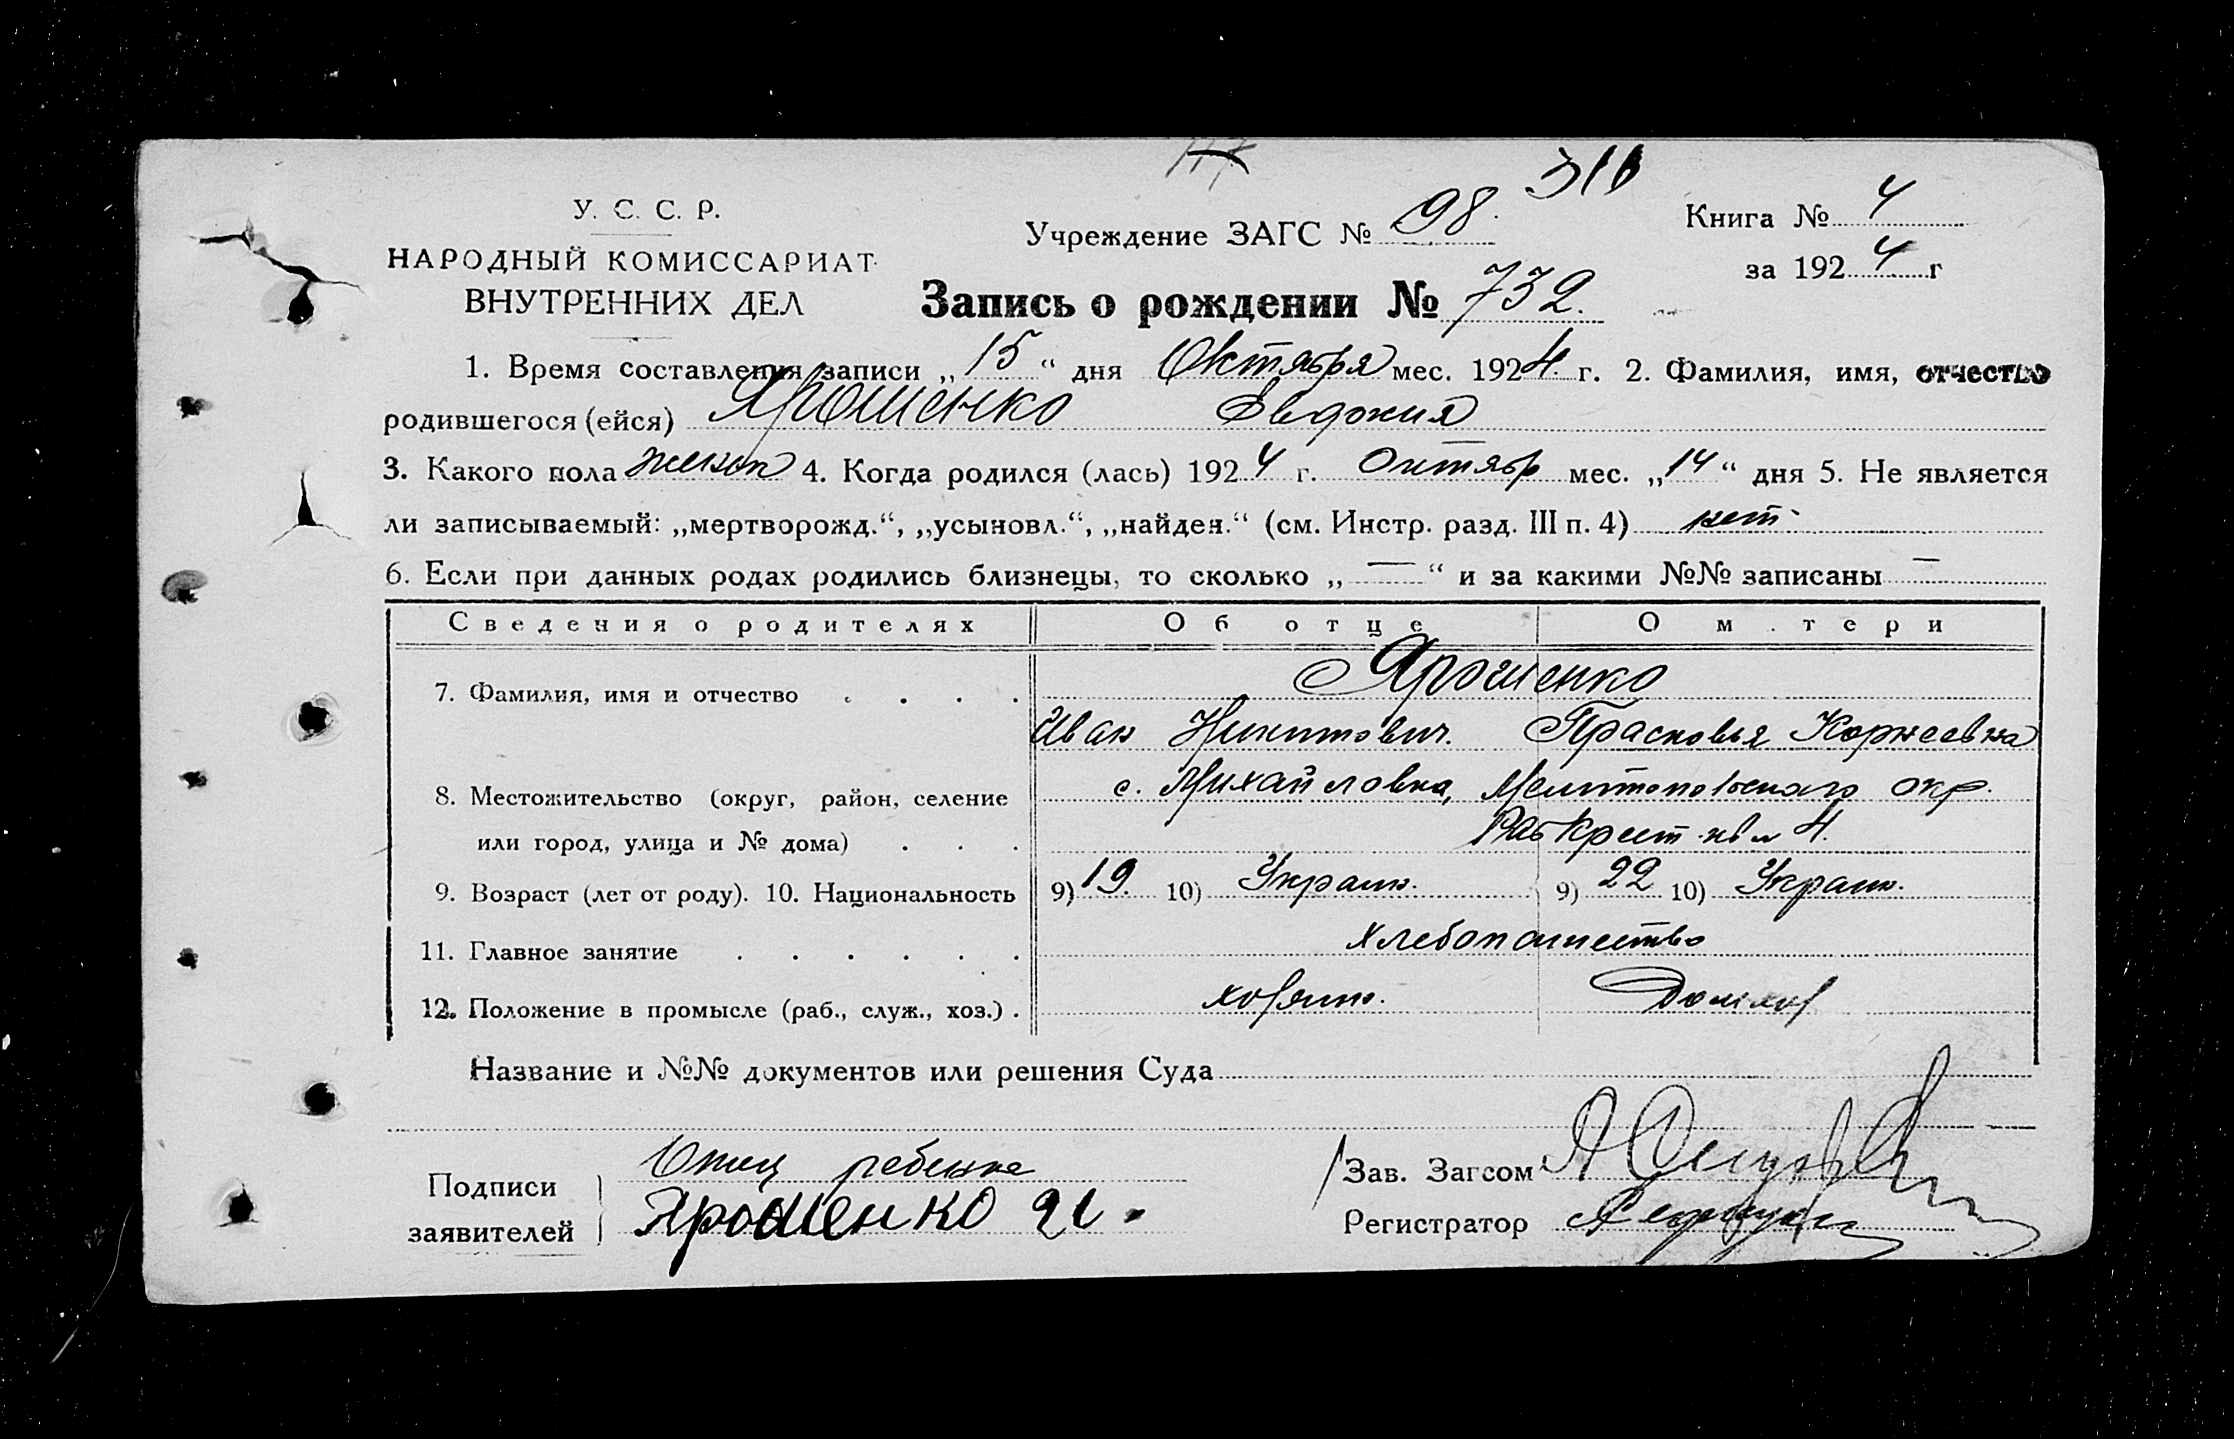 117
310
У. С. С. Р.
НАРОДНЫЙ КОМИССАРИАТ
ВНУТРЕННИХ ДЕЛ
Учреждение ЗАГС № 98.
Книга № 4
за 1924 г
Запись о рождении № 732.
1. Время составления записи „15“ дня Октября мес. 1924. г. 2. Фамилия, имя, отчество
родившегося (ейся) Ярошенко Евдокия
3. Какого пола женск 4. Когда родился (лась) 1924 г. Октябр мес. „14“ дня 5. Не является
ли записываемый: „мертворожд.“, „усыновл.“, „найден.“ (см. Инстр. разд. III п. 4) нет
6. Если при данных родах родились близнецы, то сколько „—“ и за какими №№ записаны —
Сведения о родителях Об отце О матери
7. Фамилия, имя и отчество . . . . Ярошенко
Иван Никитович. Прасковья Корнеевна
8. Местожительство (округ, район, селение с. Михайловка, Мелитопольского окр.
или город, улица и № дома) . . . 4.
9. Возраст (лет от роду). 10. Национальность 9) 19. 10) Украин. 9) 22 10) Украин.
11. Главное занятие . . . . . . хлебопашество
12. Положение в промысле (раб., служ., хоз.) . хозяин. Домхоз
Название и №№ документов или решения Суда
Подписи заявителей
Отец ребенка
Ярошенко
Зав. Загсом
Регистратор